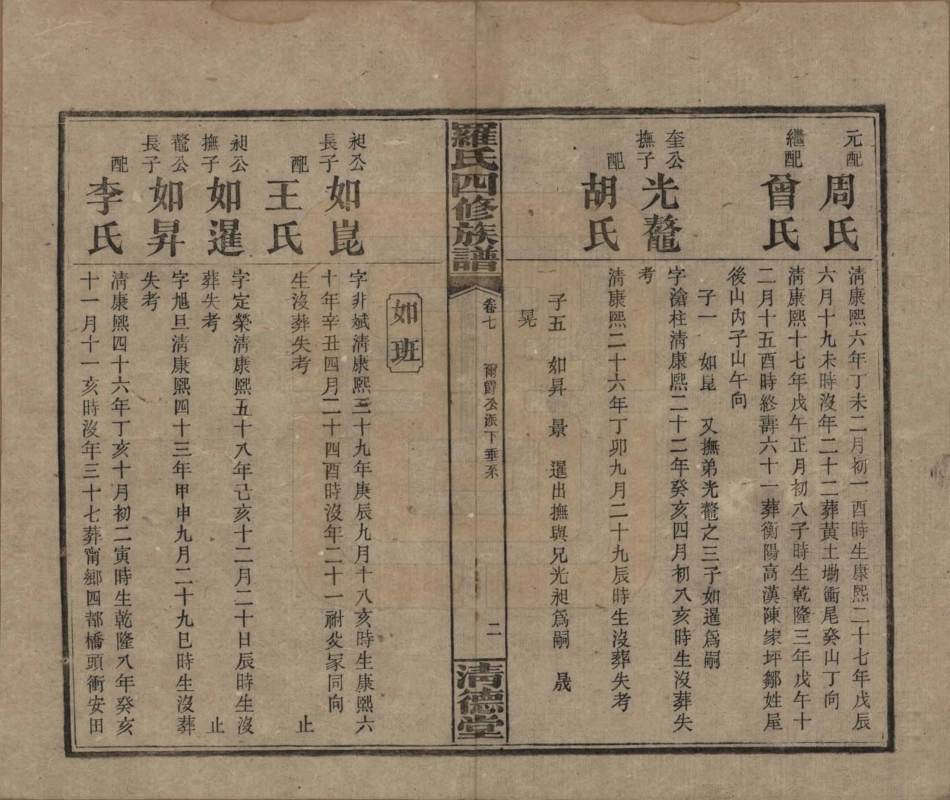 元配
周氏
清康熙六年丁未二月初一酉時生康熙二十七年戊辰
六月十九未時沒年二十二葬黃土坳衝尾癸山丁向
繼配
曾氏
清康熙十七年戊午正月初八子時生乾隆三年戊午十
二月十五酉時終壽六十一葬衡陽高漢陳家坪鄒姓屋
後山內子山午向
子一 如崑 又撫弟光鼇之三子如暹爲嗣
奎公
撫子
光鼇
字滄柱清康熙二十二年癸亥四月初八亥時生沒葬失
考
配
胡氏
清康熙二十六年丁卯九月二十九辰時生沒葬失考
子五 如昇 景 暹出撫與兄光昶爲嗣 晟
晃
羅氏四修族譜
卷七
爾爵公派下垂系
二
清德堂
如班
昶公
長子
如崑
字非斌清康熙三十九年庚辰九月十八亥時生康熙六
十年辛丑四月二十四酉時沒年二十一祔癸冢同向
配
王氏
生沒葬失考 止
昶公
撫子
如暹
字定榮清康熙五十八年己亥十二月二十日辰時生沒
葬失考 止
鼇公
長子
如昇
字旭旦清康熙四十三年甲申九月二十九巳時生沒葬
失考
配
李氏
清康熙四十六年丁亥十月初二寅時生乾隆八年癸亥
十一月十一亥時沒年三十七葬甯鄉四都橋頭衝安田